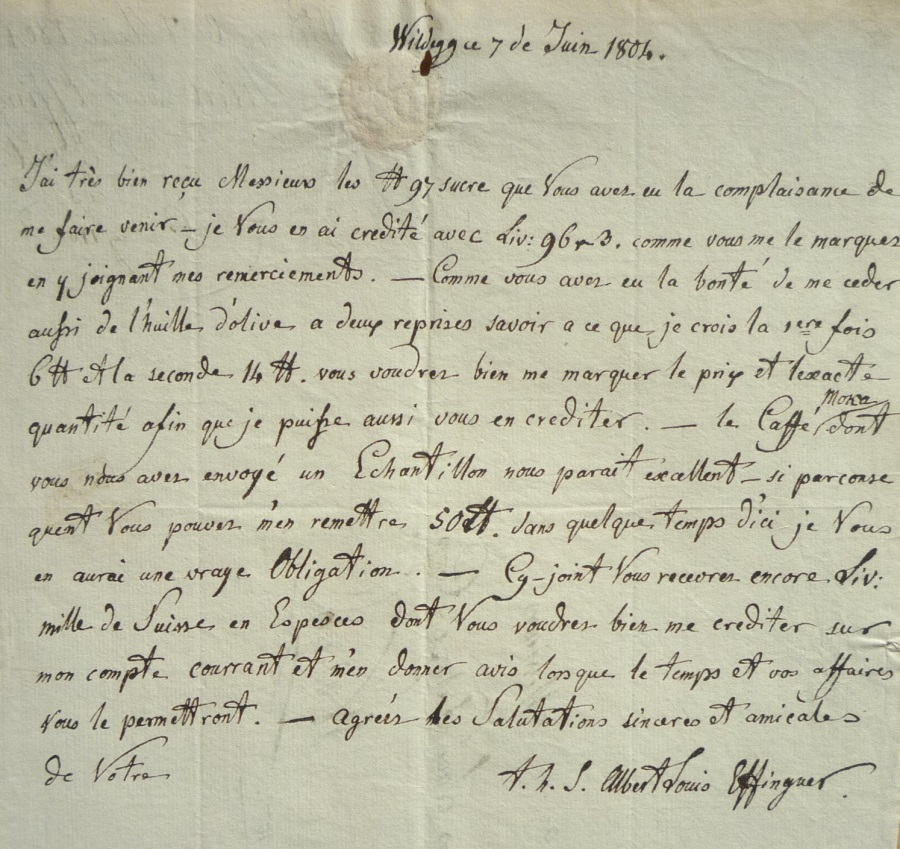 Wildegg ce 7 de Juin 1804.
J'ai très bien reçu Messieurs les ℔ 97 sucre que Vous avez eu la complaisance de
me faire venir – je Vous en ai credité avec Liv: 96 r 3. comme vous me le marquez
en y joignant mes remerciements. — Comme vous avez eu la bonté de me ceder
aussi de l'huille d'olive a deux reprises savoir a ce que je crois la 1ere fois
6 ℔ et la seconde 14 ℔. vous voudrez bien me marquer le prix et l'exacte
quantité afin que je puisse aussi vous en crediter. — le Caffé Moka dont
vous nous avez envoyé un Echantillon nous parait excellent – si par conse
quent Vous pouvez m'en remettre 50 ℔. dans quelque temps d'ici je Vous
en aurai une vraye Obligation. — Cy-joint Vous recevrez encore Liv:
mille de Suisse en Especes dont Vous voudrez bien me crediter sur
mon compte courrant et m'en donner avis lorsque le temps et vos affaires
vous le permettront. — agréez les Salutations sinceres et amicales
de Votre
t. h. S. Albert Louis Effinguer.